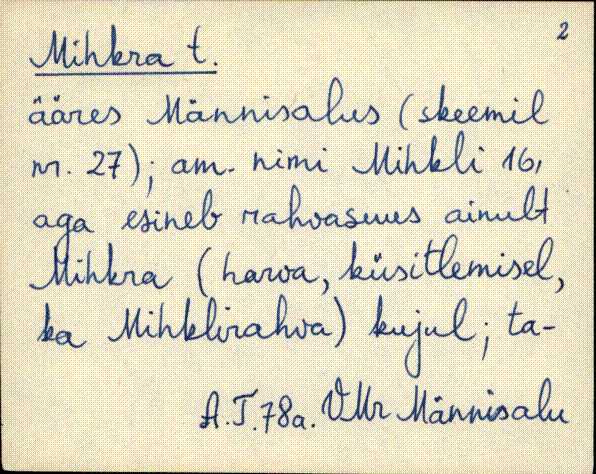 2
Mihkra t.
ääres Männisalus (skeemil
nr. 27); am. nimi Mihkli 16,
aga esineb rahvasuus ainult
Mihkra (harva, küsitlemisel,
ka Mihklirahva) kujul; ta-
A.T.78a. VMr Männisalu